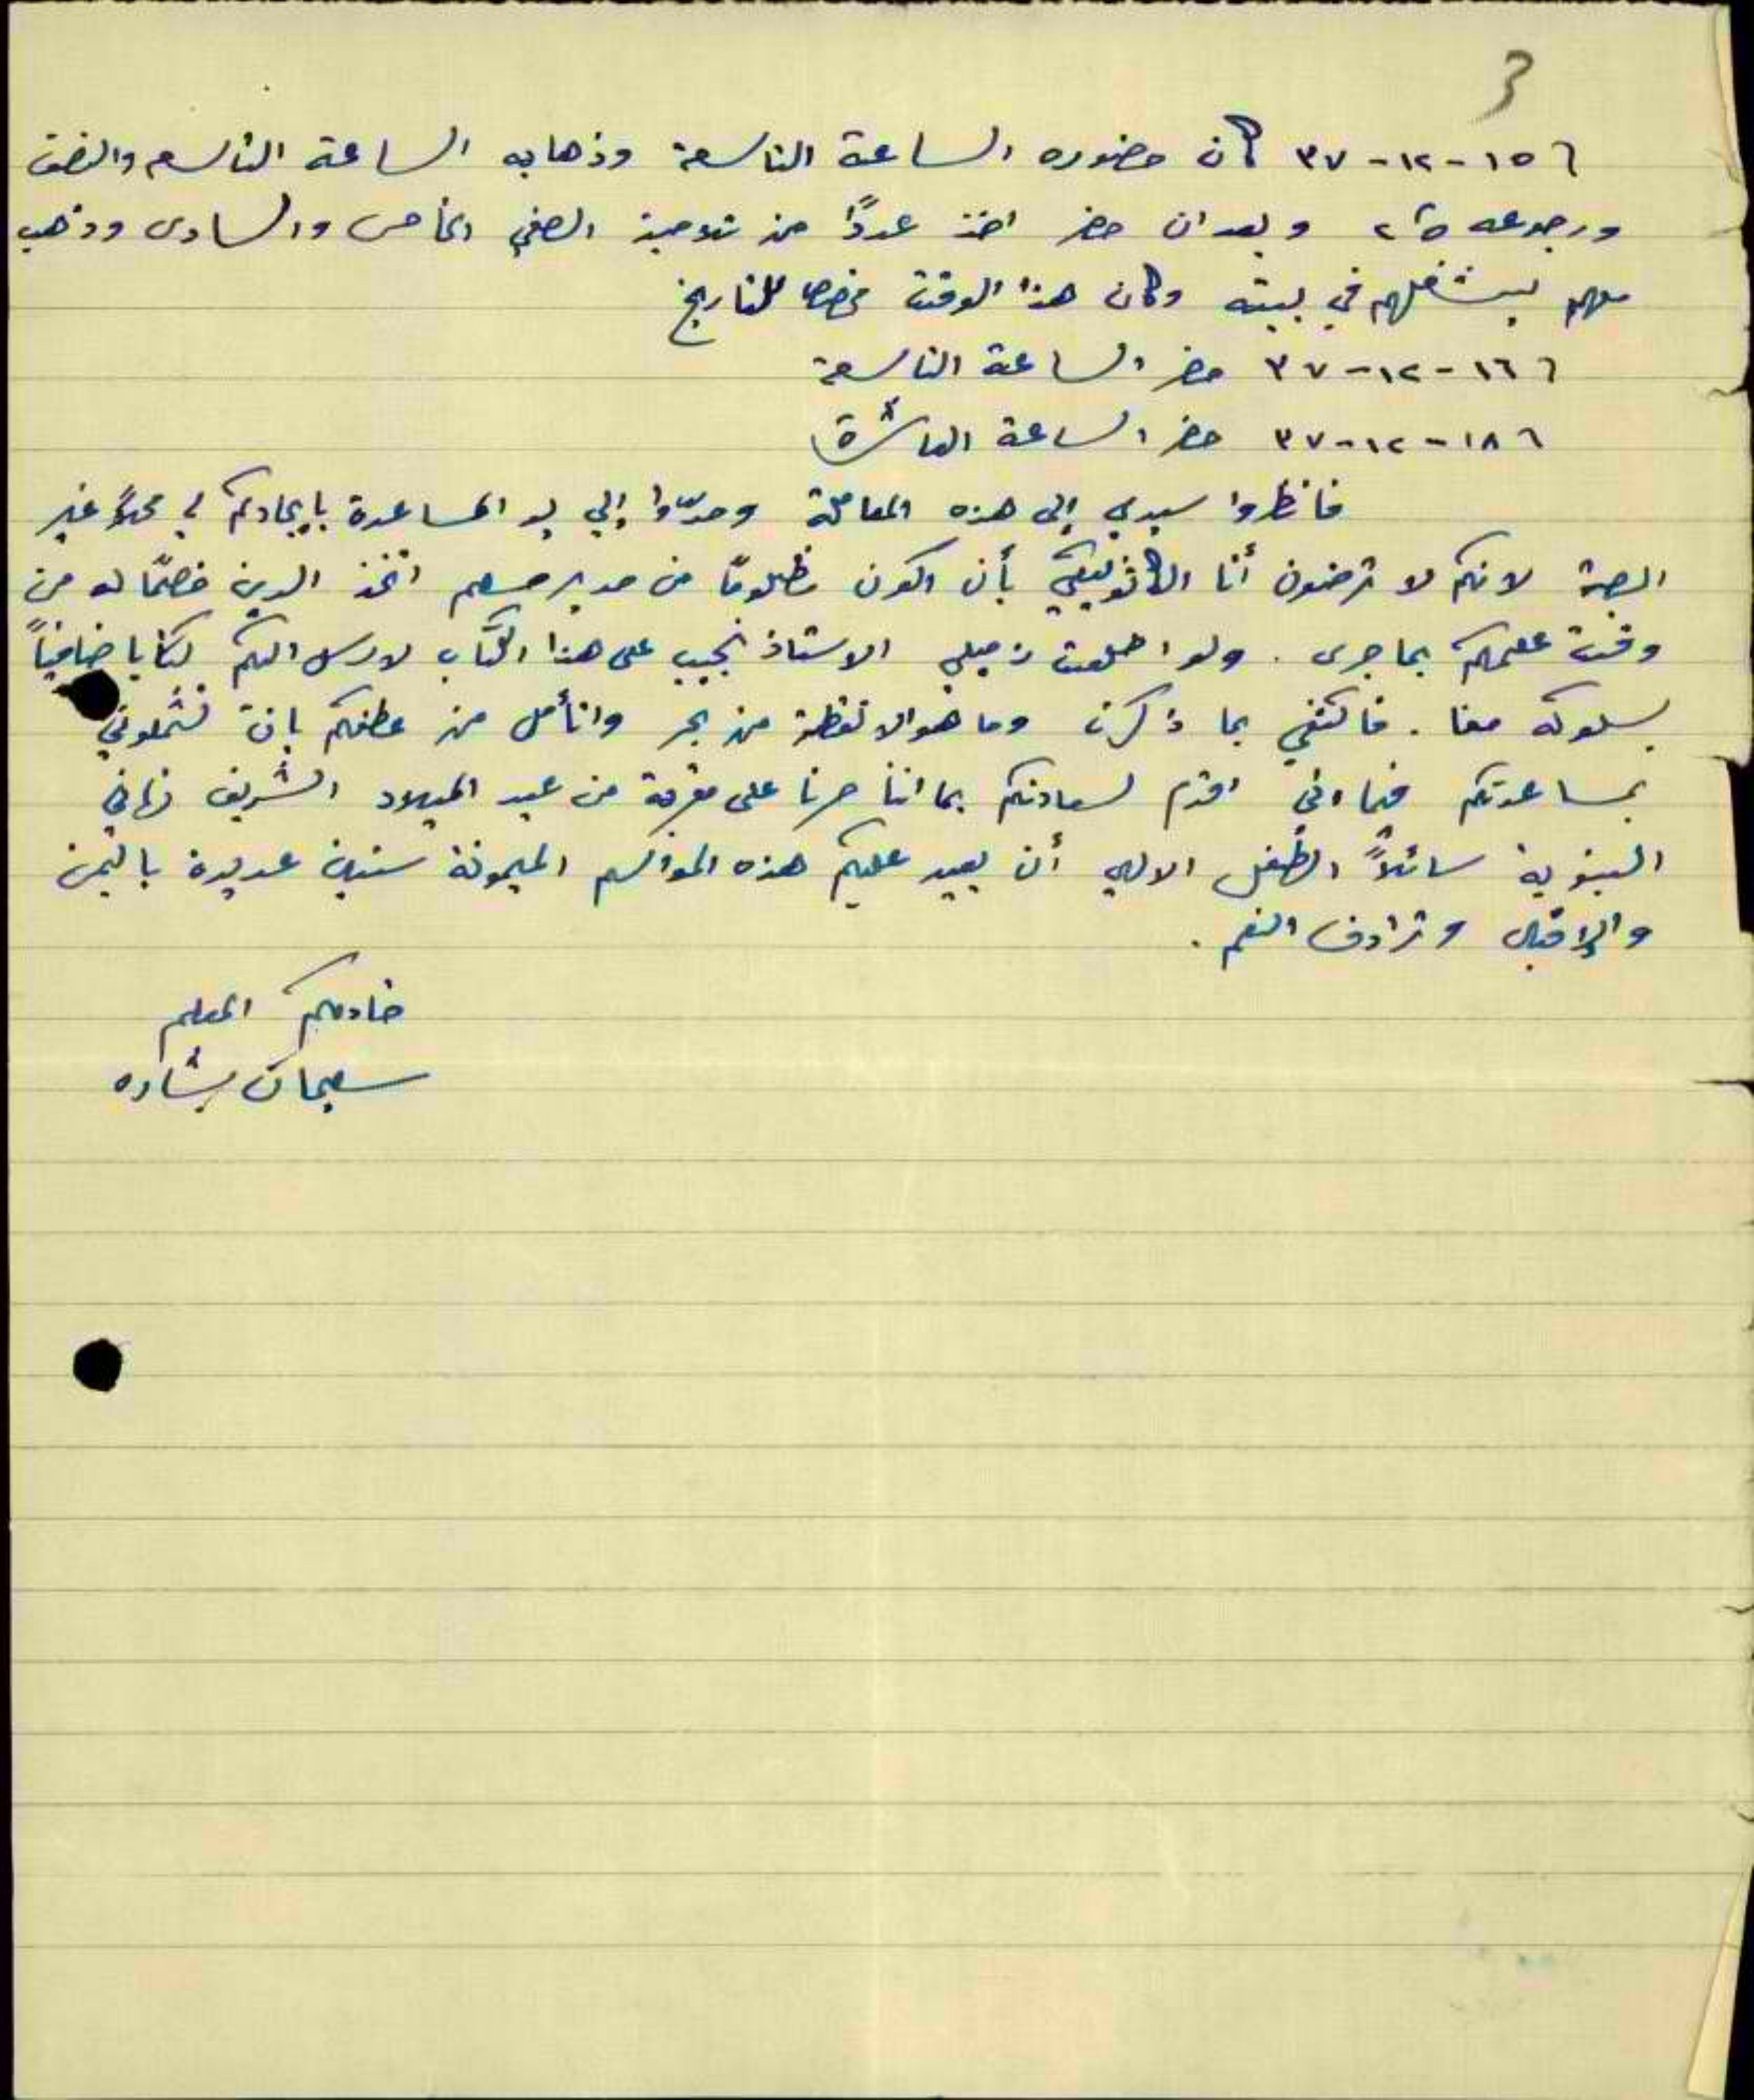 3
٦ ١٥-١٢-٣٧ كان حضوره الساعة التاسعة وذهابه الساعة التاسعه والنصف
ورجوعه وبعد ان حضر اخذ عددًا من تلاميذ الصفي الخامس والسادس وذهب
معهم ليشغلهم في بيته وكان هذا الوقت مخصصا للتاريخ
٦ ١٦-١٢-٣٧ حضر الساعة التاسعة
٦ ١٨-١٢-٣٧ حضر الساعة العاشرة
فانظروا سيدي إلى هذه المعاملة ومدّوا إلي يد المساعدة بايجادكم لي محلاً غير
البصة لانكم لا ترضون أنا الكاثوليكي بأن اكون مظلومًا من مدير مسلم اتخذ الدين خصمًا له من
وقت علمكم بما جرى . ولو اطلعت زميلي الاستاذ نجيب على هذا الكتاب لارسل اليكم كتابا ضافياً
بسلوكه معنا . فاكتفي بما ذكرت وما هو الا نقطة من بحر واتأمل من عطفكم بان تشملوني
بمساعدتكم كما اني اقدم لسعادتكم بما اننا صرنا على مقربة من عيد الميلاد الشريف تهاني
البنوية سائلاً الطفل الالهي أن يعيد عليكم هذه المواسم الميمونة سنين عديدة باليمن
والإقبال وترادف النعم .
خادمكم المعلم
سليمان بشاره